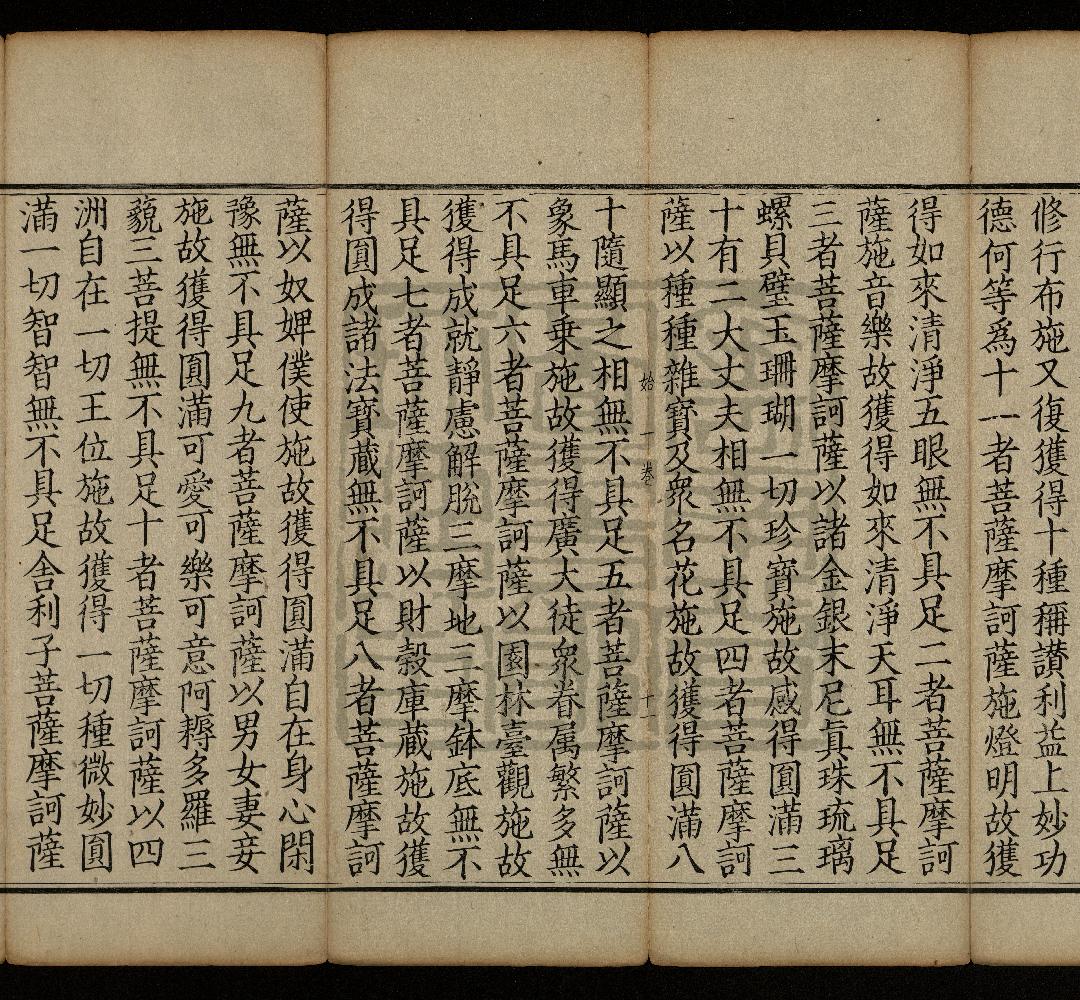 修行布施又復獲得十種稱讃利益上妙功
德何等爲十一者菩薩摩訶薩施燈明故獲
得如來清淨五眼無不具足二者菩薩摩訶
薩施音樂故獲得如來清淨天耳無不具足
三者菩薩摩訶薩以諸金銀末尼真珠琉璃
螺貝璧玉珊瑚一切珍寶施故感得圓滿三
十有二大丈夫相無不具足四者菩薩摩訶
薩以種種雜寶及眾名花施故獲得圓滿八
始一卷 十一
十隨顯之相無不具足五者菩薩摩訶薩以
象馬車乘施故獲得廣大徒眾眷属繁多無
不具足六者菩薩摩訶薩以園林臺觀施故
獲得成就靜慮解脫三摩地三摩鉢底無不
具足七者菩薩摩訶薩以財穀庫藏施故獲
得圓成諸法寶藏無不具足八者菩薩摩訶
薩以奴婢僕使施故獲得圓滿自在身心閑
豫無不具足九者菩薩摩訶薩以男女妻妾
施故獲得圓滿可愛可樂可意阿耨多羅三
藐三菩提無不具足十者菩薩摩訶薩以四
洲自在一切王位施故獲得一切種微妙圓
滿一切智智無不具足舍利子菩薩摩訶薩